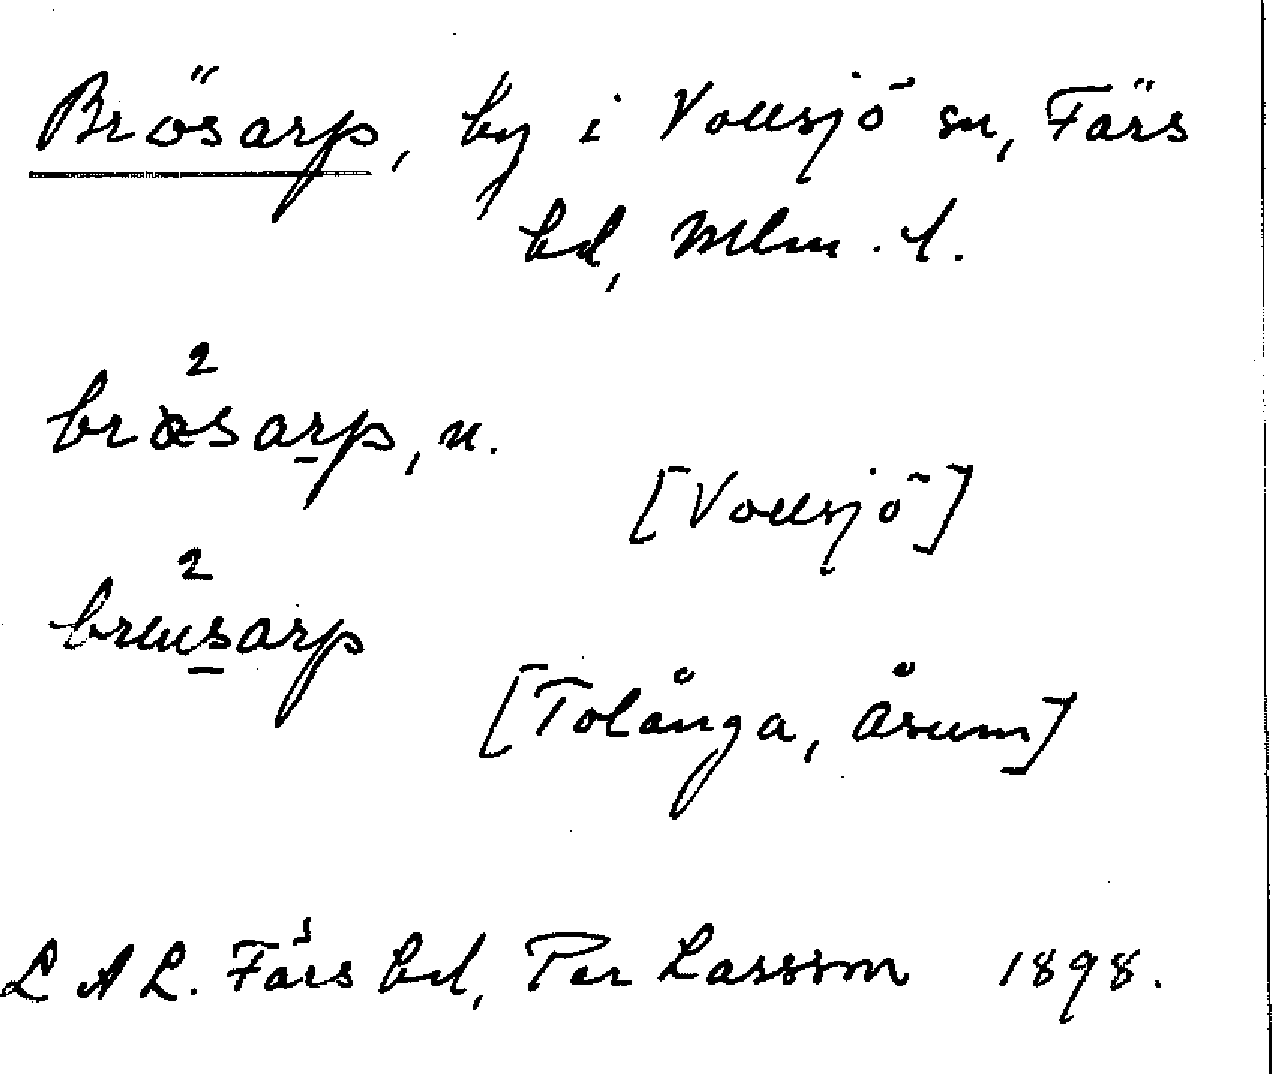 Brösarp, by i Vollsjö sn, Färs
hd, Mlm. l.
2
brösarp, n.
[Vollsjö]
2
breusarp
[Tolånga, Åsum]
L A L. Färs hd, Per Larsson 1898.